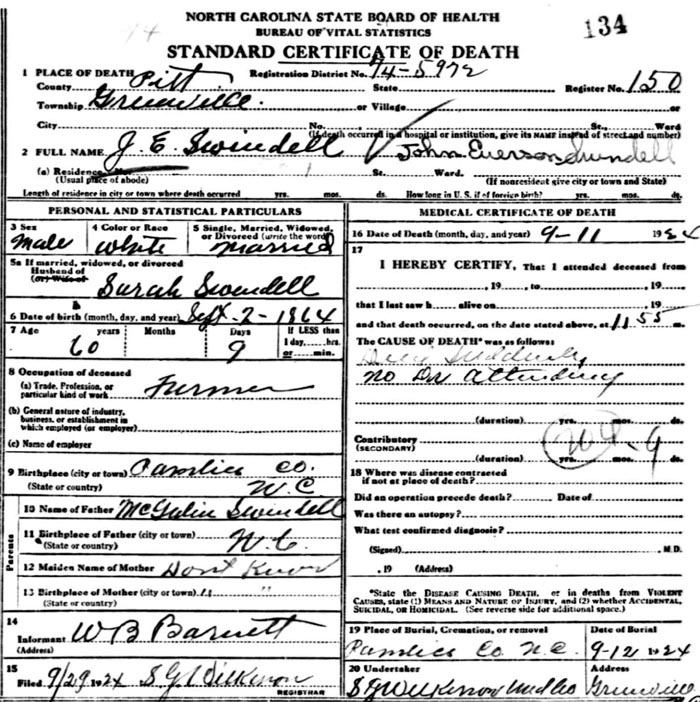 NORTH CAROLINA STATE BOARD OF HEALTH
BUREAU OF VITAL STATISTICS
134
STANDARD CERTIFICATE OF DEATH
1 PLACE OF DEATH Registration District No. 74-5972
County Pitt State Register No. 150
Township Greenville or Village
City No. St., Ward
(If death occurred in a hospital or institution, give its NAME instead of street and number)
2 FULL NAME J. E. Swindell John Everson Swindell
(a) Residence. No. St. Ward.
(Usual place of abode) (If nonresident give city or town and State)
Length of residence in city or town where death occurred yrs. mos. ds. How long in U.S. if of foreign birth? yrs. mos. ds.
PERSONAL AND STATISTICAL PARTICULARS
3 Sex 4 Color or Race 5 Single, Married, Widowed, or Divorced (write the word)
Male White Married
5a If married, widowed, or divorced
Husband of
(or) Wife of Sarah Swindell
6 Date of birth (month, day, and year) Sept-2-1864
7 Age years Months Days If LESS than
60 9 1 day, hrs.
or min.
8 Occupation of deceased
(a) Trade, Profession, or particular kind of work Farmer
(b) General nature of industry, business, or establishment in which employed (or employer)
(c) Name of employer
9 Birthplace (city or town) Pamlico Co.
(State or country) N.C
Parents
10 Name of Father Swindell
11 Birthplace of Father (city or town) N.C.
(State or country)
12 Maiden Name of Mother Dont Know
13 Birthplace of Mother (city or town) " "
(State or country)
14
Informant W B Barnett
(Address)
15
Filed 9/29 1924 S G Wilkerson
REGISTRAR
MEDICAL CERTIFICATE OF DEATH
16 Date of Death (month, day, and year) 9-11 1924
17
I HEREBY CERTIFY, That I attended deceased from
, 19 , to , 19
that I last saw h alive on , 19
and that death occurred, on the date stated above, at 1155
The CAUSE OF DEATH* was as follows:
Died Suddenly
No Dr Attending
(duration) yrs. mos. ds.
Contributory
(SECONDARY)
(duration) yrs. mos. ds.
18 Where was disease contracted
if not at place of death?
Did an operation precede death? Date of
Was there an autopsy?
What test confirmed diagnosis?
(Signed) M.D.
, 19 (Address)
*State the DISEASE CAUSING DEATH, or in deaths from VIOLENT CAUSES, state (1) MEANS AND NATURE OF INJURY, and (2) whether ACCIDENTAL, SUICIDAL, OR HOMICIDAL. (See reverse side for additional space.)
19 Place of Burial, Cremation, or removal Date of Burial
Pamlico Co N.C. 9-12 1924
20 Undertaker Address
S G Wilkerson Greenville